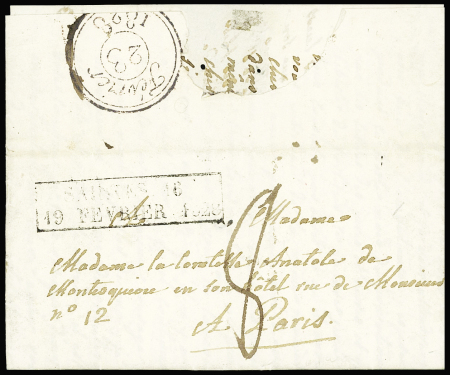 Février
23
1828
19 FÉVRIER 1828
A Madame
Madame la Comtesse Anatole de
Montesquiou en son hôtel rue de Monsieur
n° 12
8
A Paris.